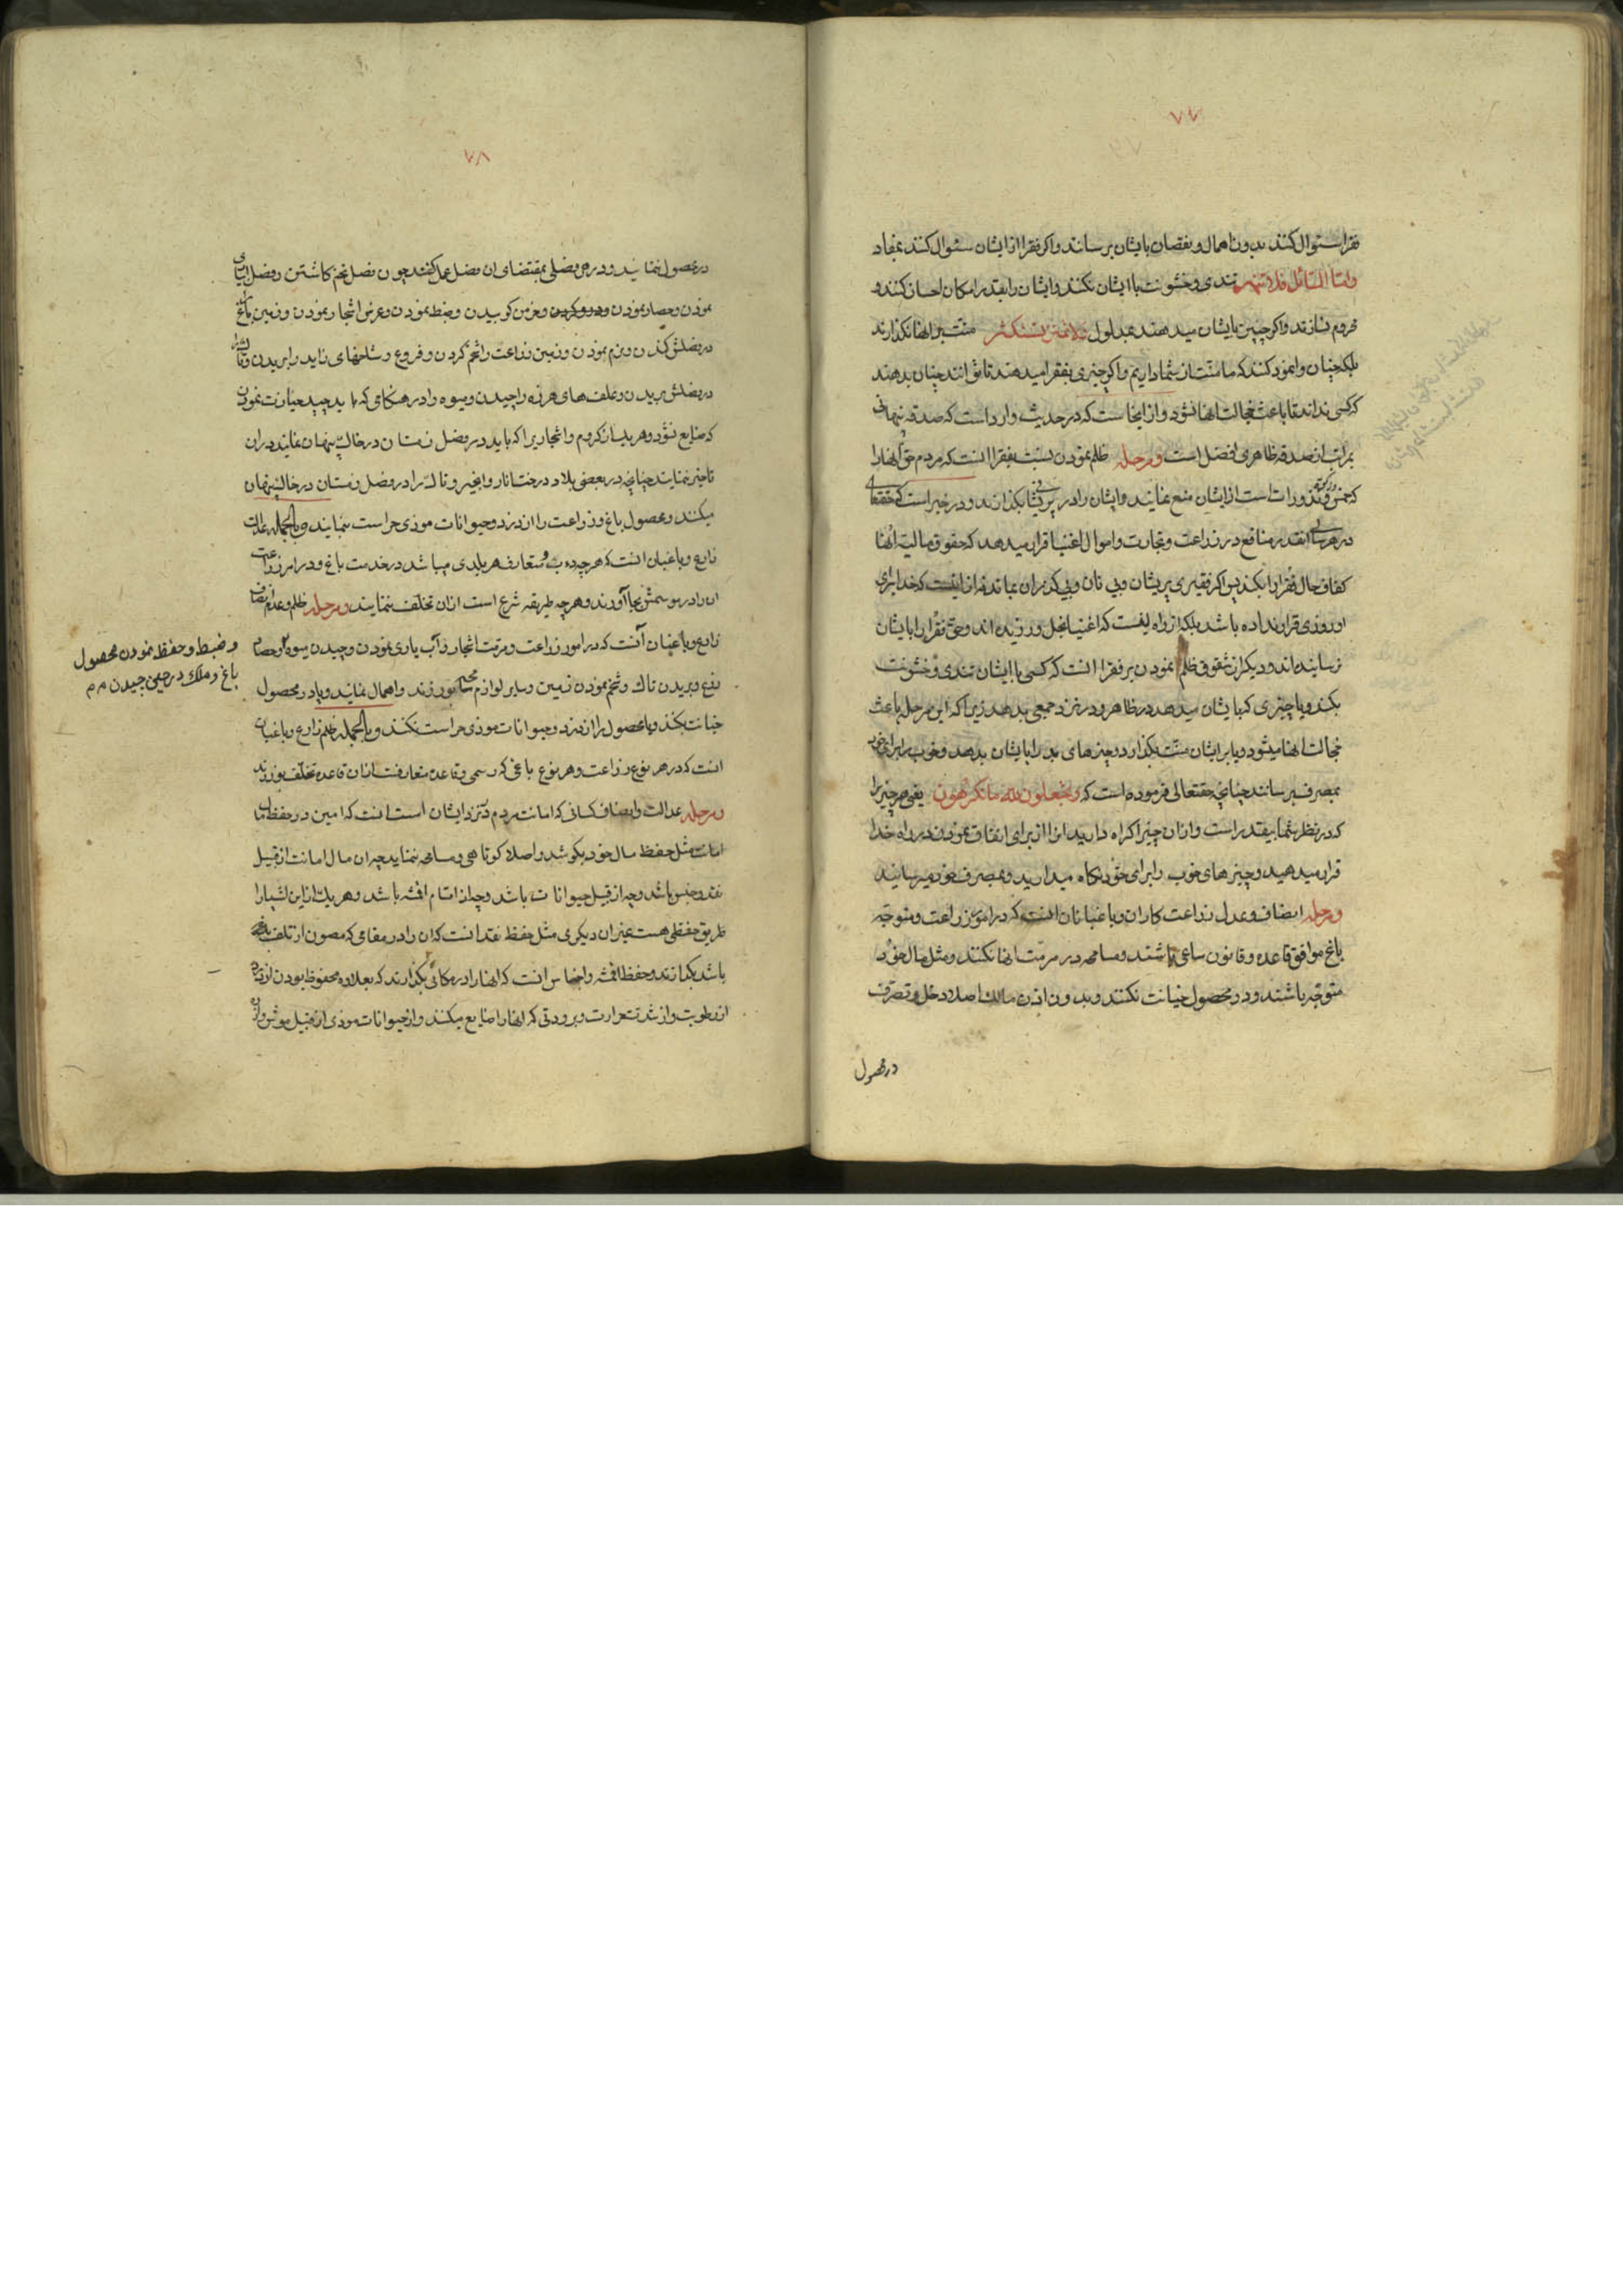 ۷۷
فقرا سئوال کنند بدون اهمال و نقصان بایشان برسانند و اکر فقرا از ایشان سئوال کنند بمفاد
و امّا السّائل فلا تنهر تندی و خشونت با ایشان نکنند و ایشان را بقدر امکان احسان کنند و
محروم نسازند و اکر چیزی بایشان میدهند بمدلول و لا تمنن تستکثر منّت بر انها نکذارند
بلکه چنان وانمود کنند که ما منّت از شما داریم و اکر چیزی بفقرا میدهند تا توانند چنان بدهند
که کسی نداند تا باعث خجالت انها نشود و از اینجاست که در حدیث وارد است که صدقه نهانی
بمراتب از صدقه ظاهری افضل است و مرحله ظلم نمودن نسبت بفقرا انست که مردم حق انها را
که خمس و زکوة و نذورات است از ایشان منع نمایند و ایشان را در پریشانی بکذارند و در خبر است که حقتعالی
در هر سالی انقدر منافع در زراعت و تجارت و اموال اغنیا قرار میدهد که حقوق مالیه انها
کفاف حال فقرا را بکند پس اکر فقیری پریشان و بی نان و بی کذران بماند نه از اینست که خدا برای
او روزی قرار نداده باشد بلکه از راه اینست که اغنیا بخل ورزیده اند و حق فقرا را بایشان
نرسانیده اند و دیکر از شقوق ظلم نمودن بر فقرا انست که کسی با ایشان تندی و خشونت
بکند و یا چیزی که بایشان میدهد در ظاهر و در نزد جمعی بدهد زیرا که این مرحله باعث
خجالت انها میشود و یا بر ایشان منّت بکذارد و چیزهای بد را بایشان بدهد و خوب را برای خود
بمصرف برساند چنانچه حقتعالی فرموده است که و یجعلون لله ما یکرهون یعنی هر چیز را
که در نظر شما بیقدر است و از ان چیز اکراه دارید انرا از برای انفاق نمودن در راه خدا
قرار میدهید و چیزهای خوب را برای خود نکاه میدارید و بمصرف خود میرسانید
و مرحله انصاف و عدل زراعت کاران و باغبانان انست که در امور زراعت و متوجّه
باغ موافق قاعده و قانون ساعی باشند و مسامحه در مرمّت انها نکنند و مثل مال خود
متوجّه باشند و در محصول خیانت نکنند و بدون اذن مالک اصلا دخل و تصرّف
در محصول
۷۸
در محصول ننمایند و در هر فصلی بمقتضای ان فصل عمل کنند چون فصل تخم کاشتن و فصل ابیاری
نمودن و حصار نمودن و درو کردن و خرمن کوبیدن و ضبط نمودن و غرس اشجار نمودن و زمین باغ را
در فصلش کندن و نرم نمودن و زمین زراعت را شخم کردن و فروع و شاخهای زاید را بریدن و تاک را
در فصلش بریدن و علف های هرزه را چیدن و میوه را در هنکامی که باید چید حیازت نمودن
که ضایع نشود و هر یک از کروم و اشجاریرا که باید در فصل زمستان در خاک پنهان نمایند در ان
تاخیر ننمایند چنانچه در بعضی بلاد درخت انار و انجیر و تاک را در فصل زمستان در خاک پنهان
میکنند و محصول باغ و زراعت را از دزد و حیوانات موذی حراست نمایند و بالجمله عدالت
زارع و باغبان انست که هرچه دب و متعارف هر بلدی میباشد در خدمت باغ و در امر زراعت
ان را در موسمش بجا آورند و هرچه طریقه شرع است ازان تخلّف ننمایند و مرحله ظلم و عدم انصاف
زارع و باغبان آنست که در امور زراعت و مرمّت اشجار و آب یاری نمودن و چیدن میوه و حصاد
زرع و بریدن تاک و شخم نمودن زمین و سایر لوازم مسامحه ورزند و اهمال نمایند و یا در محصول
خیانت بکنند و یا محصول را از دزد و حیوانات موذی حراست نکنند و بالجمله ظلم زارع و باغبان
انست که در هر نوع زراعت و هر نوع باغی که رسمی و قاعده متعارفست از ان قاعده تخلّف بورزند
و مرحله عدالت و انصاف کسانی که امانت مردم در نزد ایشان است انست که امین در حفظ مال
امانت مثل حفظ مال خود بکوشد و اصلا کوتاهی و مسامحه ننماید چه ان مال امانت از قبیل
نقد و جنس باشد و چه از قبیل حیوانات باشد و چه از اقسام اقمشه باشد و هر یک از این اشیا را
طریق حفظی هست غیر ان دیکری مثل حفظ نقد انست که ان را در مقامی که مصون از تلف
باشد بکذارند و حفظ اقمشه و اجناس انست که انها را در مکانی بکذارند که بعلاوه محفوظ بودن از دزد
از رطوبت و از شدت حرارت و برودتی که انها را ضایع میکند و از حیوانات موذی از قبیل موش و
و ضبط و حفظ نمودن محصول
باغ و ملک در حین چیدن م م